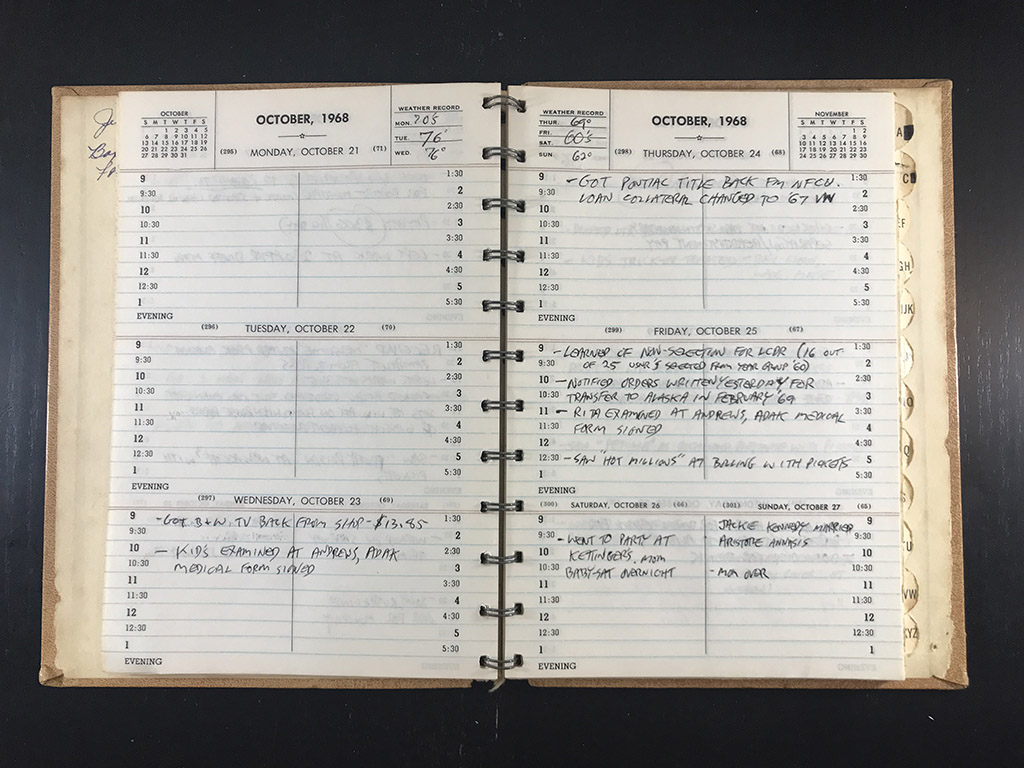 OCTOBER
S M T W T F S
1 2 3 4 5
6 7 8 9 10 11 12
13 14 15 16 17 18 19
20 21 22 23 24 25 26
27 28 29 30 31
OCTOBER, 1968
(295) MONDAY, OCTOBER 21 (71)
WEATHER RECORD
MON. 70S
TUE. 76°
WED. 76°
9 1:30
9:30 2
10 2:30
10:30 3
11 3:30
11:30 4
12 4:30
12:30 5
1 5:30
EVENING
(296) TUESDAY, OCTOBER 22 (70)
9 1:30
9:30 2
10 2:30
10:30 3
11 3:30
11:30 4
12 4:30
12:30 5
1 5:30
EVENING
(297) WEDNESDAY, OCTOBER 23 (69)
9 - GOT B+W. TV BACK FROM SHOP - $13.85 1:30
9:30 2
10 - KIDS EXAMINED AT ANDREWS, ADAK 2:30
10:30 MEDICAL FORM SIGNED 3
11 3:30
11:30 4
12 4:30
12:30 5
1 5:30
EVENING
WEATHER RECORD
THUR. 69°
FRI. 60'S
SAT.
SUN. 62°
OCTOBER, 1968
(298) THURSDAY, OCTOBER 24 (68)
NOVEMBER
S M T W T F S
1 2
3 4 5 6 7 8 9
10 11 12 13 14 15 16
17 18 19 20 21 22 23
24 25 26 27 28 29 30
9 - GOT PONTIAC TITLE BACK FM NFCU. 1:30
9:30 LOAN COLLATERAL CHANGED TO '67 VW 2
10 2:30
10:30 3
11 3:30
11:30 4
12 4:30
12:30 5
1 5:30
EVENING
(299) FRIDAY, OCTOBER 25 (67)
9 - LEARNED OF NON-SELECTION FOR LCDR (16 OUT 1:30
9:30 OF 25 SELECTED FROM YEAR GROUP '60) 2
10 - NOTIFIED ORDERS WRITTEN YESTERDAY FOR 2:30
10:30 TRANSFER TO ALASKA IN FEBRUARY '69 3
11 - RITA EXAMINED AT ANDREWS, ADAK MEDICAL 3:30
11:30 FORM SIGNED 4
12 4:30
12:30 - SAW "HOT MILLIONS" AT BOLLING WITH 5
1 5:30
EVENING
(300) SATURDAY, OCTOBER 26 (66) (301) SUNDAY, OCTOBER 27 (65)
9 JACKIE KENNEDY MARRIED 9
9:30 - WENT TO PARTY AT ARISTOTE ONNASIS 9:30
10 KETTINGERS. MOM 10
10:30 BABY-SAT OVERNIGHT - MOM OVER 10:30
11 11
11:30 11:30
12 12
12:30 12:30
1 1
EVENING
A
C
EF
GH
IJK
O
Q
U
VW
XYZ